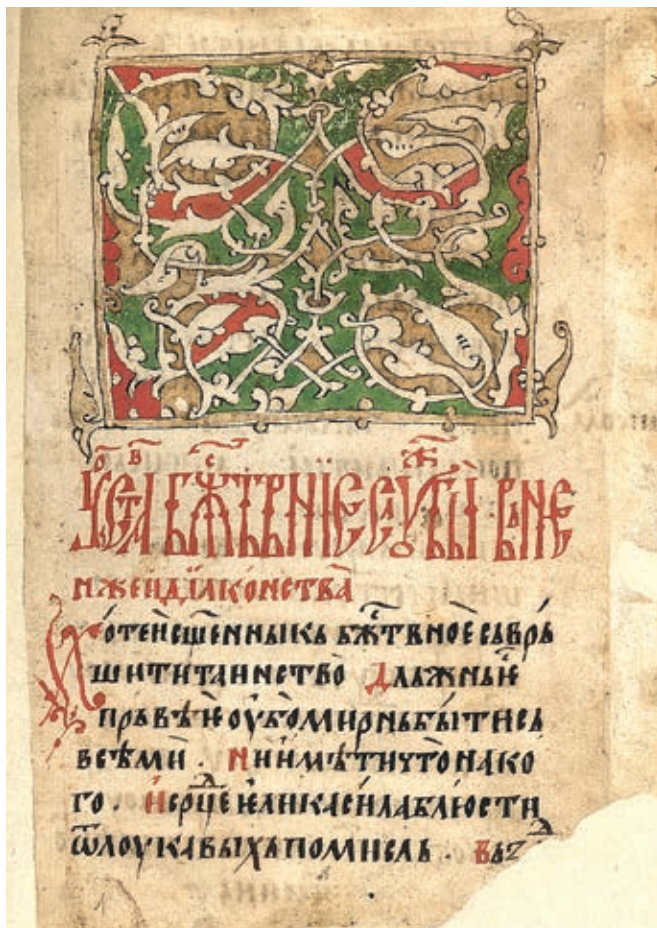 Уставь бжⷭ҇твьніѥ слоужбы. вьне
иже и дїаконства
Хотеи сщ҃енныкь бжⷭ҇твноѥ сьврь
шити таинство Дльжныѥ
прьвѣѥ оубо мирнь быти сь
всѣми. Ни имѣти что на ко
го. И срⷣце ѥлика сила блюсти
ѿ лоукавыхь помисль. Вьꙁⷣ